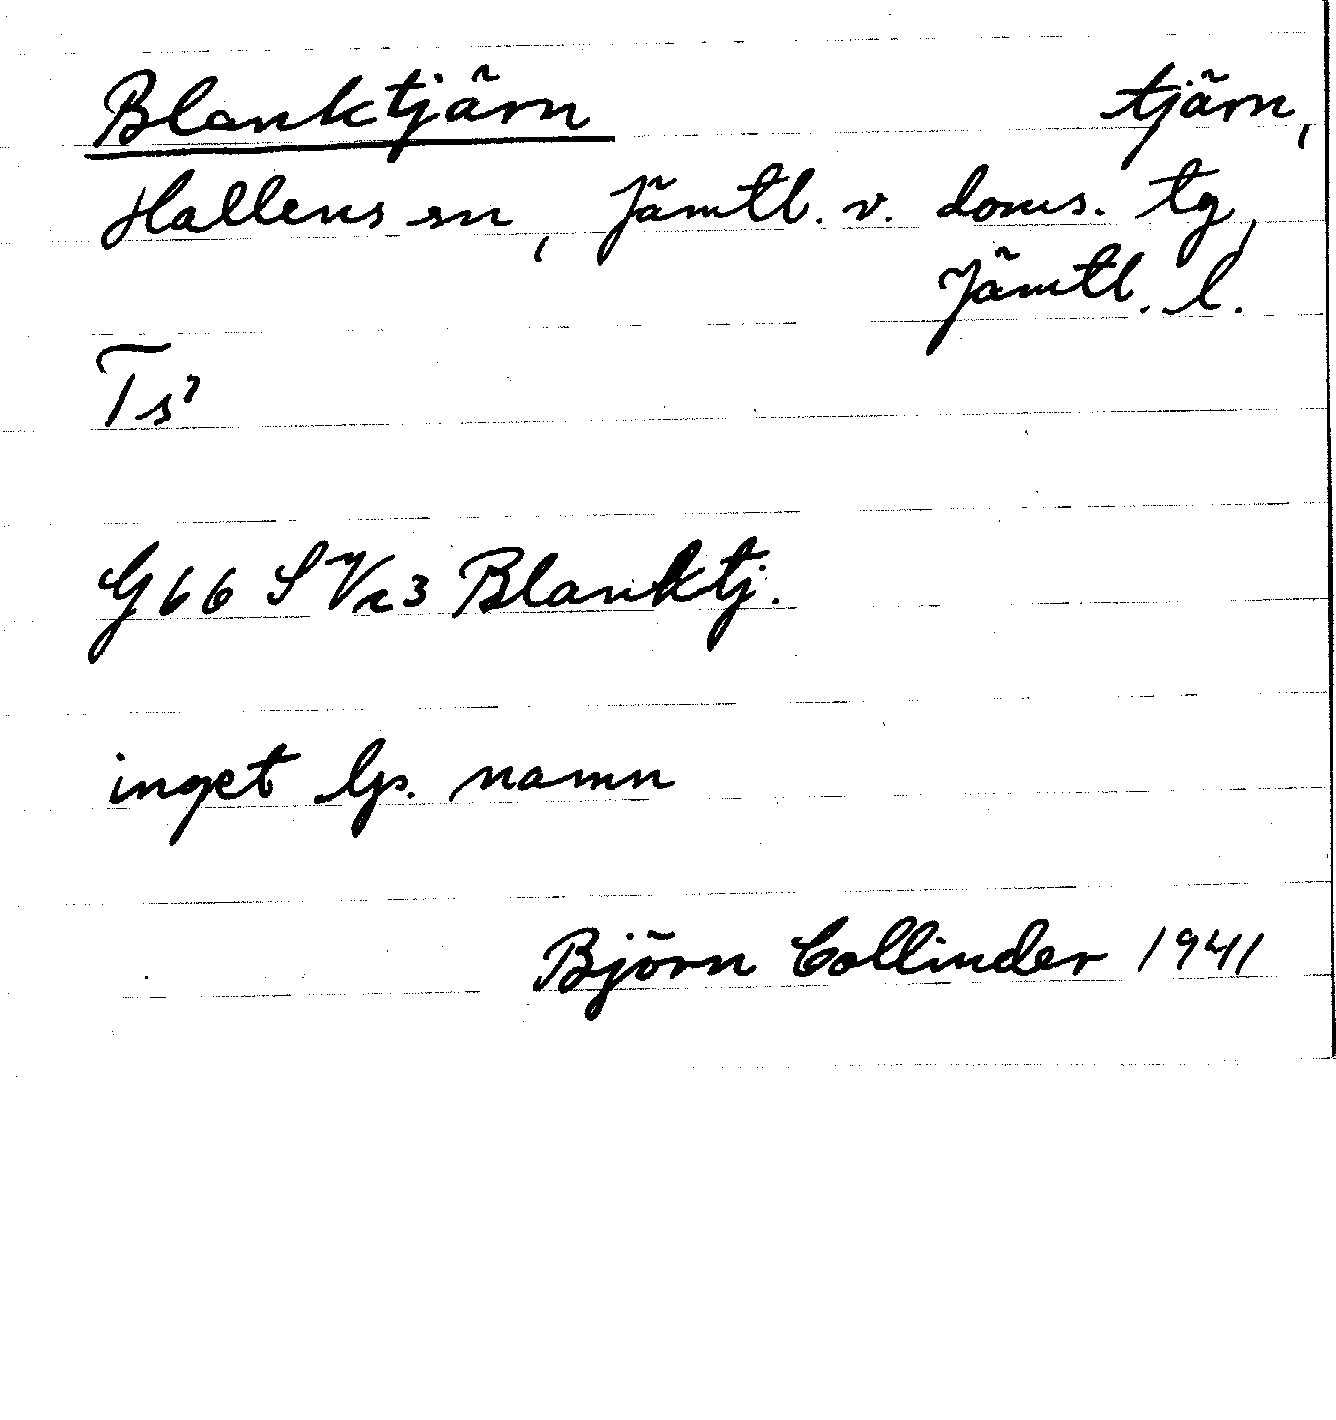 Blanktjärn tjärn,
Hallens sn, Jämtl. v. doms. tg,
Jämtl. l.
Ts?
G66 S Va3 Blanktj.
inget lp. namn
Björn Collinder 1941